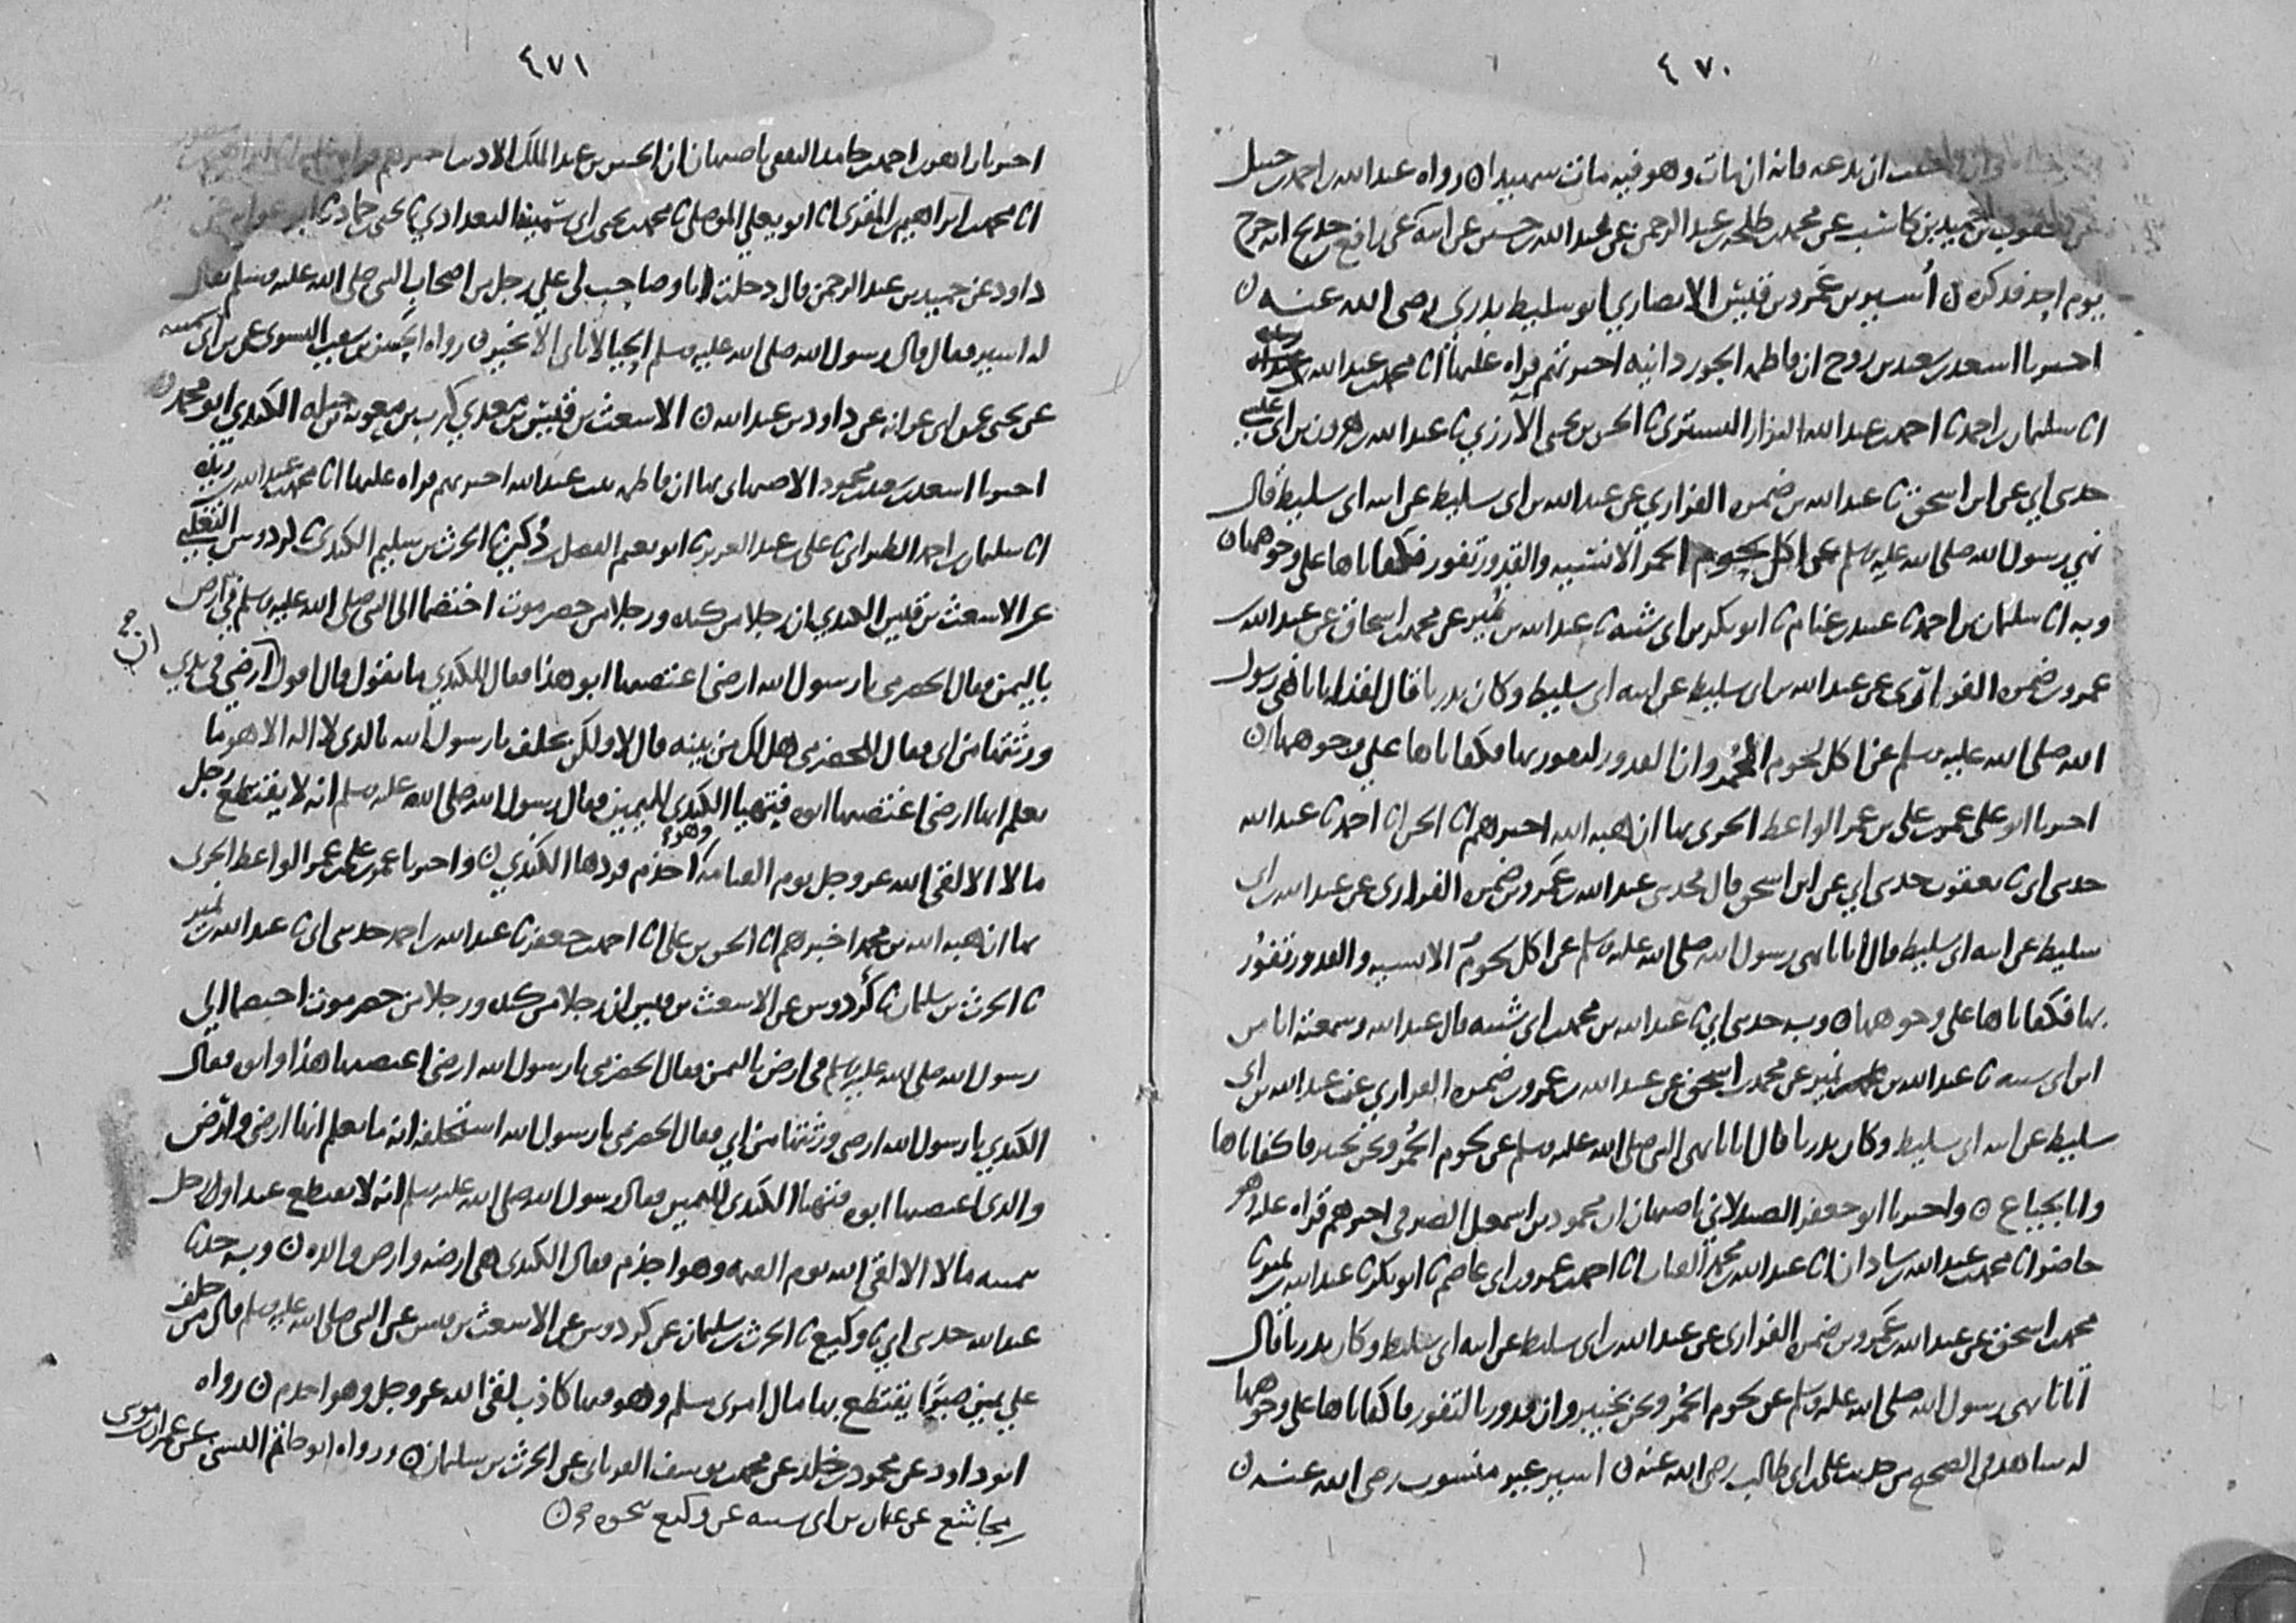 ٤٧٠
ان يدعه فانه ان مات وهو فيه مات شهيدا ن رواه عبد الله بن احمد بن حنبل
عن يعقوب بن حميد بن كاسب عن محمد بن طلحة بن عبد الرحمن عن عبد الله بن حسين عن ابيه عن رافع بن خديج انه خرج
يوم احد فذكره ن أُسير بن عمرو بن قيس الانصاري ابو سليط بدري رضي الله عنه ن
اخبرنا اسعد بن سعيد بن روح ان فاطمة الجوزدانية اخبرتهم قراه عليها انا محمد بن عبد الله بن ريذه
انا سليمان بن احمد نا احمد بن عبد الله البزار التستري نا الحسن بن يحيى الأرزي نا عبد الله بن هرون بن ابي عيسى
حدثني ابي عن ابن اسحق نا عبد الله بن ضمره الفزاري عن عبد الله بن ابي سليط عن ابيه ابي سليط قال
نهي رسول الله صلى الله عليه وسلم عن اكل لحوم الحمر الانسيه والقدور تفور فكفاناها على وجوهها ن
وبه انا سليمان بن احمد نا عبيد بن غنام نا ابو بكر بن ابي شيبه نا عبد الله بن نُمير عن محمد بن اسحاق عن عبد الله بن
عمرو بن ضمره الفزاري عن عبد الله بن ابي سليط عن ابيه ابي سليط وكان بدريا قال لقد اتانا نهي رسول
الله صلى الله عليه وسلم عن اكل لحوم الحُمر وان القدور لتفور بها فكفاناها علي وجوهها ن
اخبرنا ابو علي عمر بن علي بن عمر الواعظ الحربي بها ان هبه الله اخبرهم انا الحسن انا احمد نا عبد الله
حدثني ابي نا يعقوب حدثني ابي عن ابن اسحق قال محدثني عبد الله بن عمرو بن ضمره الفزاري عن عبد الله بن ابي
سليط عن ابيه ابي سليط قال اتانا نهي رسول الله صلى الله عليه وسلم عن اكل لحوم الحمر الانسيه والقدور تفورُ
بها فكفاناها على وجوهها ن وبه حدثني ابي نا عبد الله بن محمد بن ابي شيبه قال عبد الله وسمعته انا من
ابن ابي شيبه نا عبد الله بن نمير عن محمد بن اسحق عن عبد الله بن عمرو بن ضمره الفزاري عن عبد الله بن ابي
سليط عن ابيه ابي سليط وكان بدريا قال اتانا نهي النبي صلى الله عليه وسلم عن لحوم الحُمر ونحن بخيبر فاكفاناها
وانا لجياع ن واخبرنا ابو جعفر الصيدلاني باصبهان ان محمود بن اسمعيل الصيرفي اخبرهم قراه عليه وهو
حاضر انا محمد بن عبد الله بن شاذان انا عبد الله بن محمد القباب انا احمد بن عمرو بن ابي عاصم نا ابو بكر نا عبد الله بن نمير نا
محمد بن اسحق عن عبد الله بن عمرو بن ضمره الفزاري عن عبد الله بن ابي سليط عن ابيه ابي سليط وكان بدريا قال
اتانا نهي رسول الله صلى الله عليه وسلم عن لحوم الحُمر ونحن بخيبر وان قدورنا لتفور فاكفاناها على وجوهها
له شاهد في الصحيح من حديث علي بن ابي طالب رضي الله عنه ن اسير غير منسوب رضي الله عنه ن
٤٧١
اخبرنا زاهر بن احمد بن حامد الثقفي باصبهان ان الحسين بن عبد الملك الاديب اخبرهم قراه عليه
انا محمد بن ابراهيم بن المقري انا ابو يعلي الموصلي نا محمد بن يحيى بن ابي سمينه البغدادي نا يحيى بن حماد نا ابو عوانه عن
داود عن حميد بن عبد الرحمن قال دخلت انا وصاحب لي علي رجل من اصحاب النبي صلى الله عليه وسلم يقال
له اسير فقال قال رسول الله صلى الله عليه وسلم الحيا لا ياتي الا بخير ن رواه الحسن بن سفيان النسوي عن
عن يحيى عن ابي عوانه عن داود بن عبد الله ن الاشعث بن قيس بن معدي كرب بن معويه بن جبله الكندي ابو محمد ن
اخبرنا اسعد بن سعيد بن محمود الاصبهاني بها ان فاطمه بنت عبد الله اخبرتهم قراه عليها انا محمد بن عبد الله بن ريذه
انا سليمان بن احمد الطبراني نا علي بن عبد العزيز نا ابو نعيم الفضل بن دُكين نا الحرث بن سليم الكندي نا كردوس التغلبي
عن الاشعث بن قيس الكندي ان رجلا من كنده ورجلا من حضرموت اختصما الى النبي صلى الله عليه وسلم في ارض
باليمن فقال الحضرمي يا رسول الله ارضي اغتصبها ابو هذا فقال للكندي ما تقول قال اقول ارضي في يدي
ان
ورثتها من ابي فقال للحضرمي هل لك من بينه قال لا ولكن يحلف يا رسول الله بالذي لا اله الا هو ما
يعلم انها ارضي اغتصبها ابوه فيتهيا الكندي لليمين فقال رسول الله صلى الله عليه وسلم انه لا يقتطع رجل
مالا الا لقي الله عز وجل يوم القيامه وهو اجذم فردها الكندي ن واخبرنا عمر بن علي بن عمر الواعظ الحربي
بها ان هبه الله بن محمد اخبرهم انا الحسن بن علي انا احمد بن جعفر نا عبد الله بن احمد حدثني ابي نا عبد الله بن نمير
نا الحرث بن سليمان نا كُردوس عن الاشعث بن قيس ان رجلا من كنده ورجلا من حضرموت اختصما الي
رسول الله صلى الله عليه وسلم في ارض باليمن فقال الحضرمي يا رسول الله ارضي اغتصبها هذا وابوه فقال
الكندي يا رسول الله ارضي ورثتها من ابي فقال الحضرمي يا رسول الله استحلفه انه ما يعلم انها ارضي وارض
والدي اغتصبها ابوه فتهيا الكندي لليمين فقال رسول الله صلى الله عليه وسلم انه لا يقتطع عبد او رجل
بيمينه مالا الا لقي الله يوم القيمه وهو اجذم فقال الكندي هي ارضه وارض والده ن وبه حدثنا
عبد الله حدثني ابي نا وكيع نا الحرث بن سليمان عن كردوس عن الاشعث بن قيس عن النبي صلى الله عليه وسلم قال من حلف
علي يمين صبرًا يقتطع بها مال امري مسلم وهو فيها كاذب لقي الله عز وجل وهو اجذم ن رواه
ابو داود عن محمود بن خالد عن محمد بن يوسف الفريابي عن الحرث بن سليمان ن ورواه ابو حاتم البستي عن عمران بن موسى
بن مجاشع عن عثمان بن ابي شيبه عن وكيع بنحوه ن